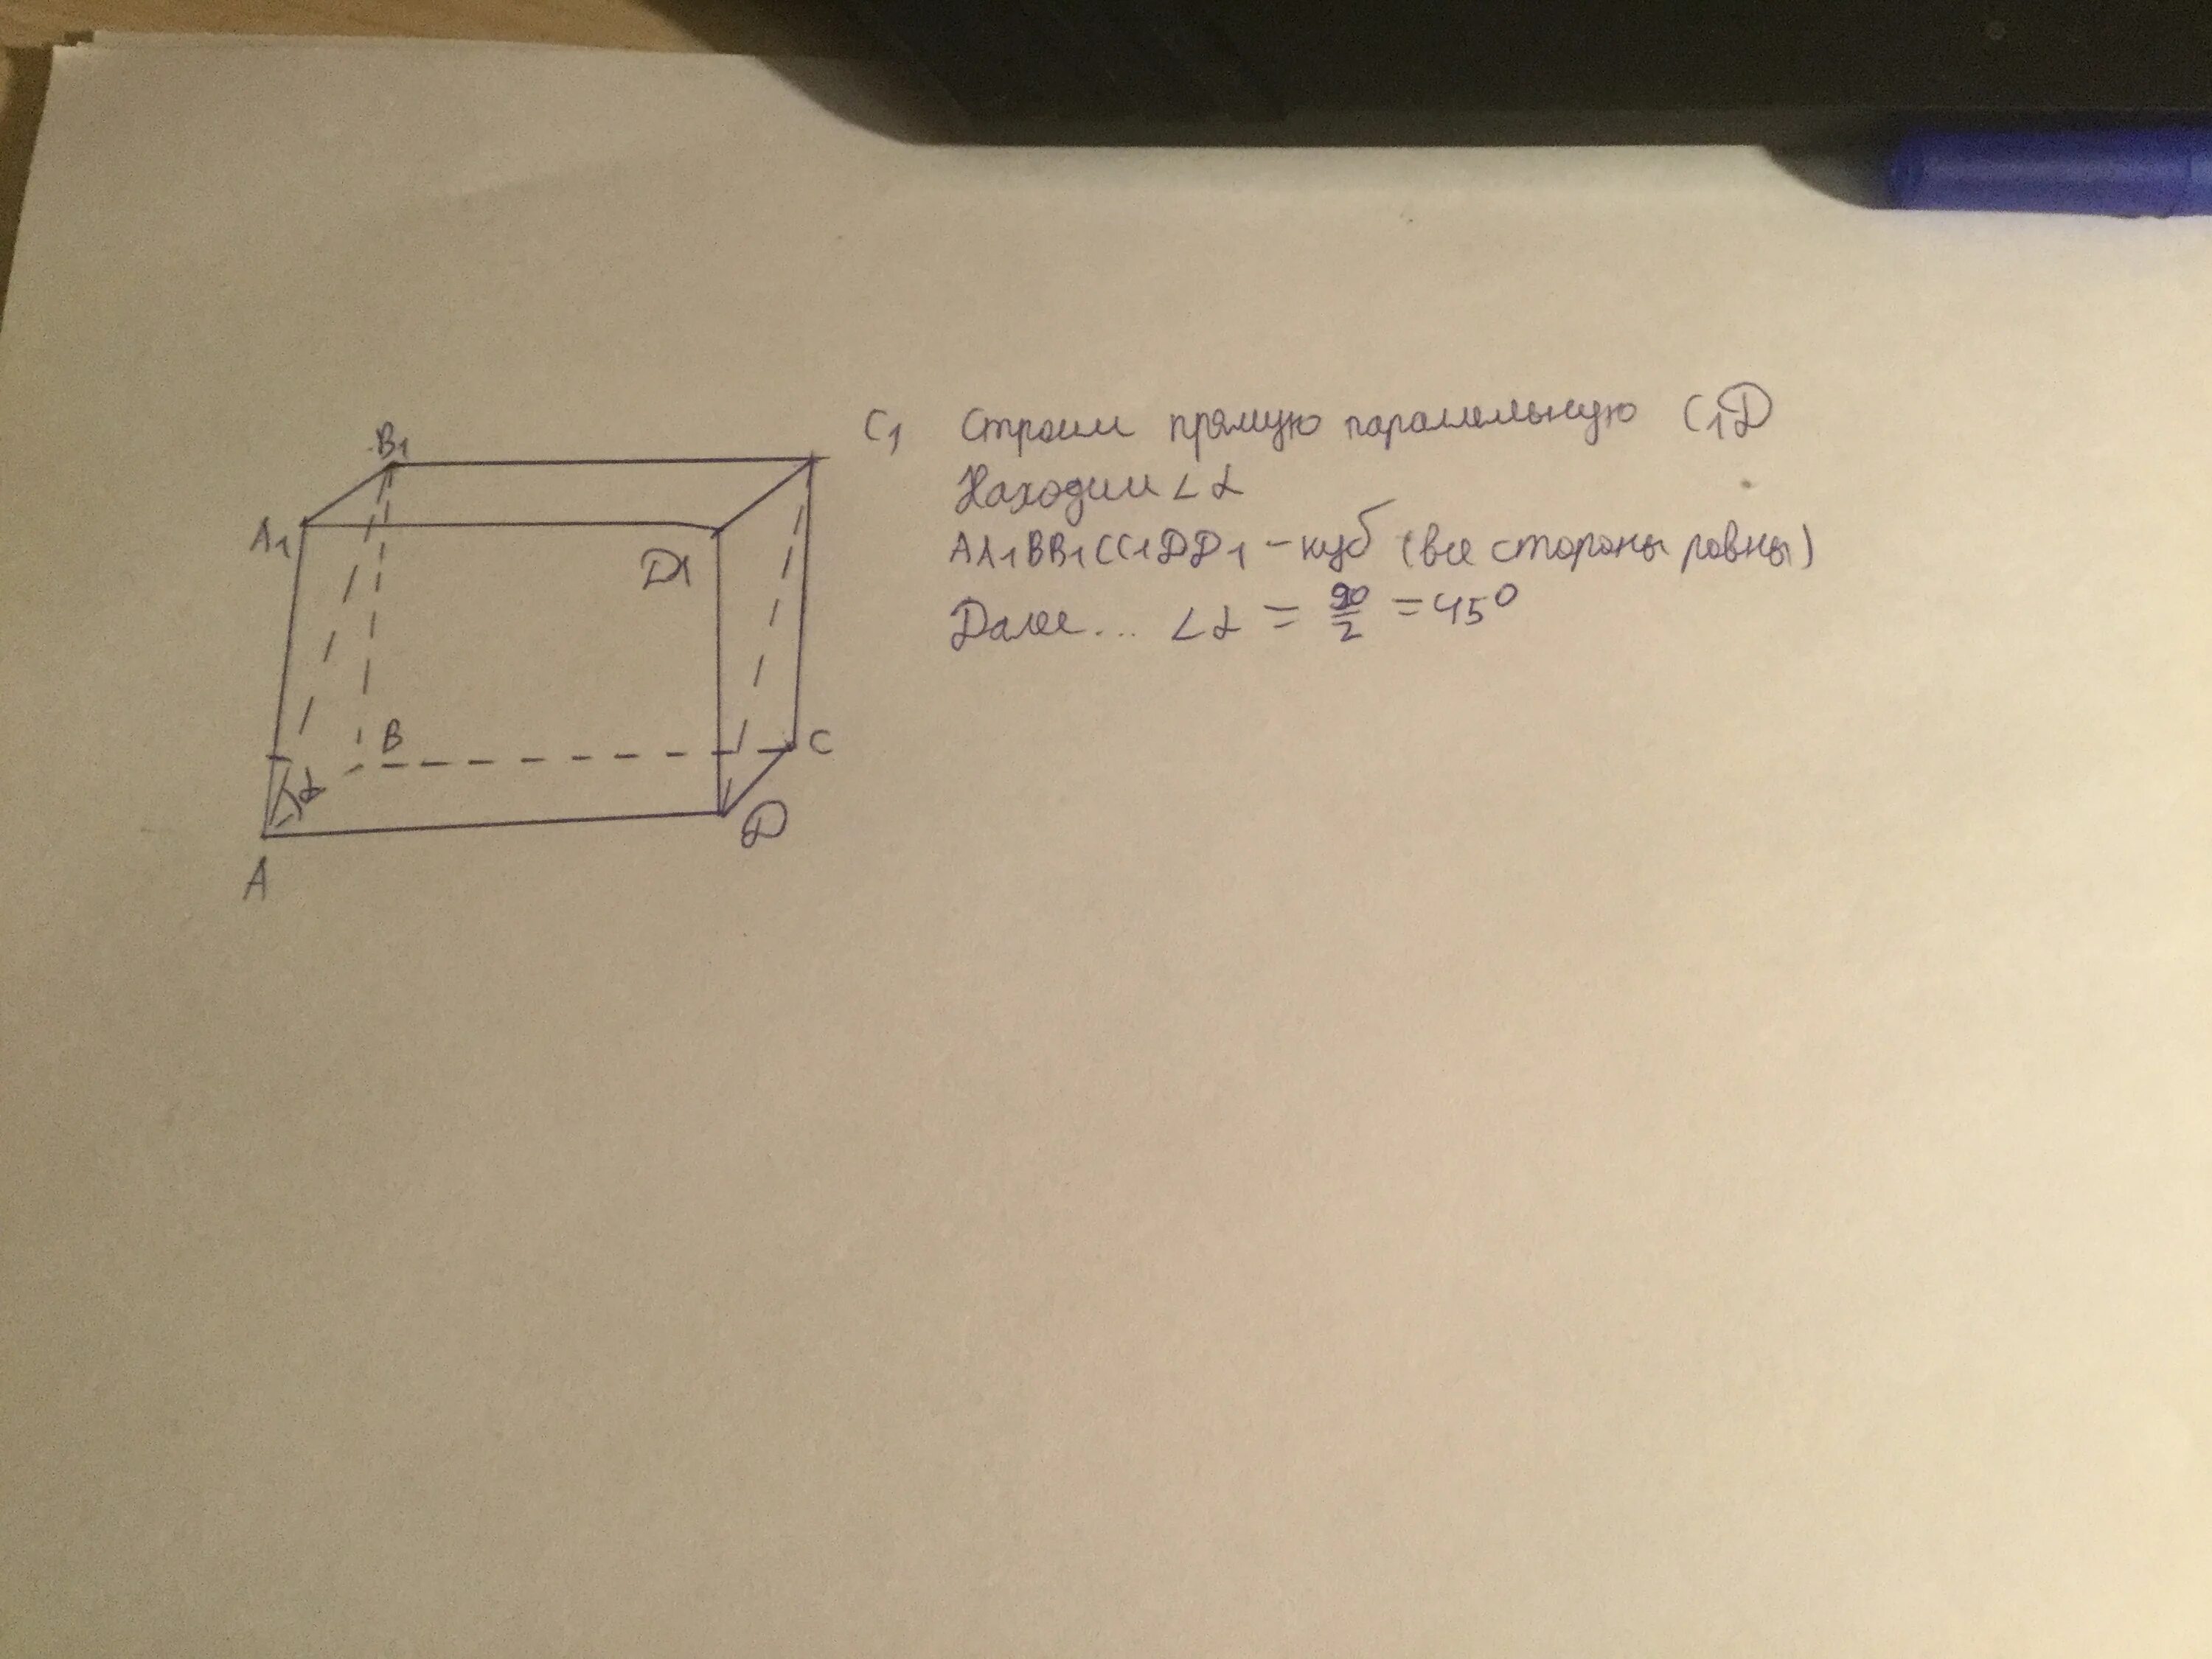 B1
C1 Строим прямую параллельную C1D
Находим ∠α
A1
D1
AA1BB1CC1DD1 – куб (все стороны равны)
Далее... ∠α = 90/2 = 45°
B
C
α
D
A